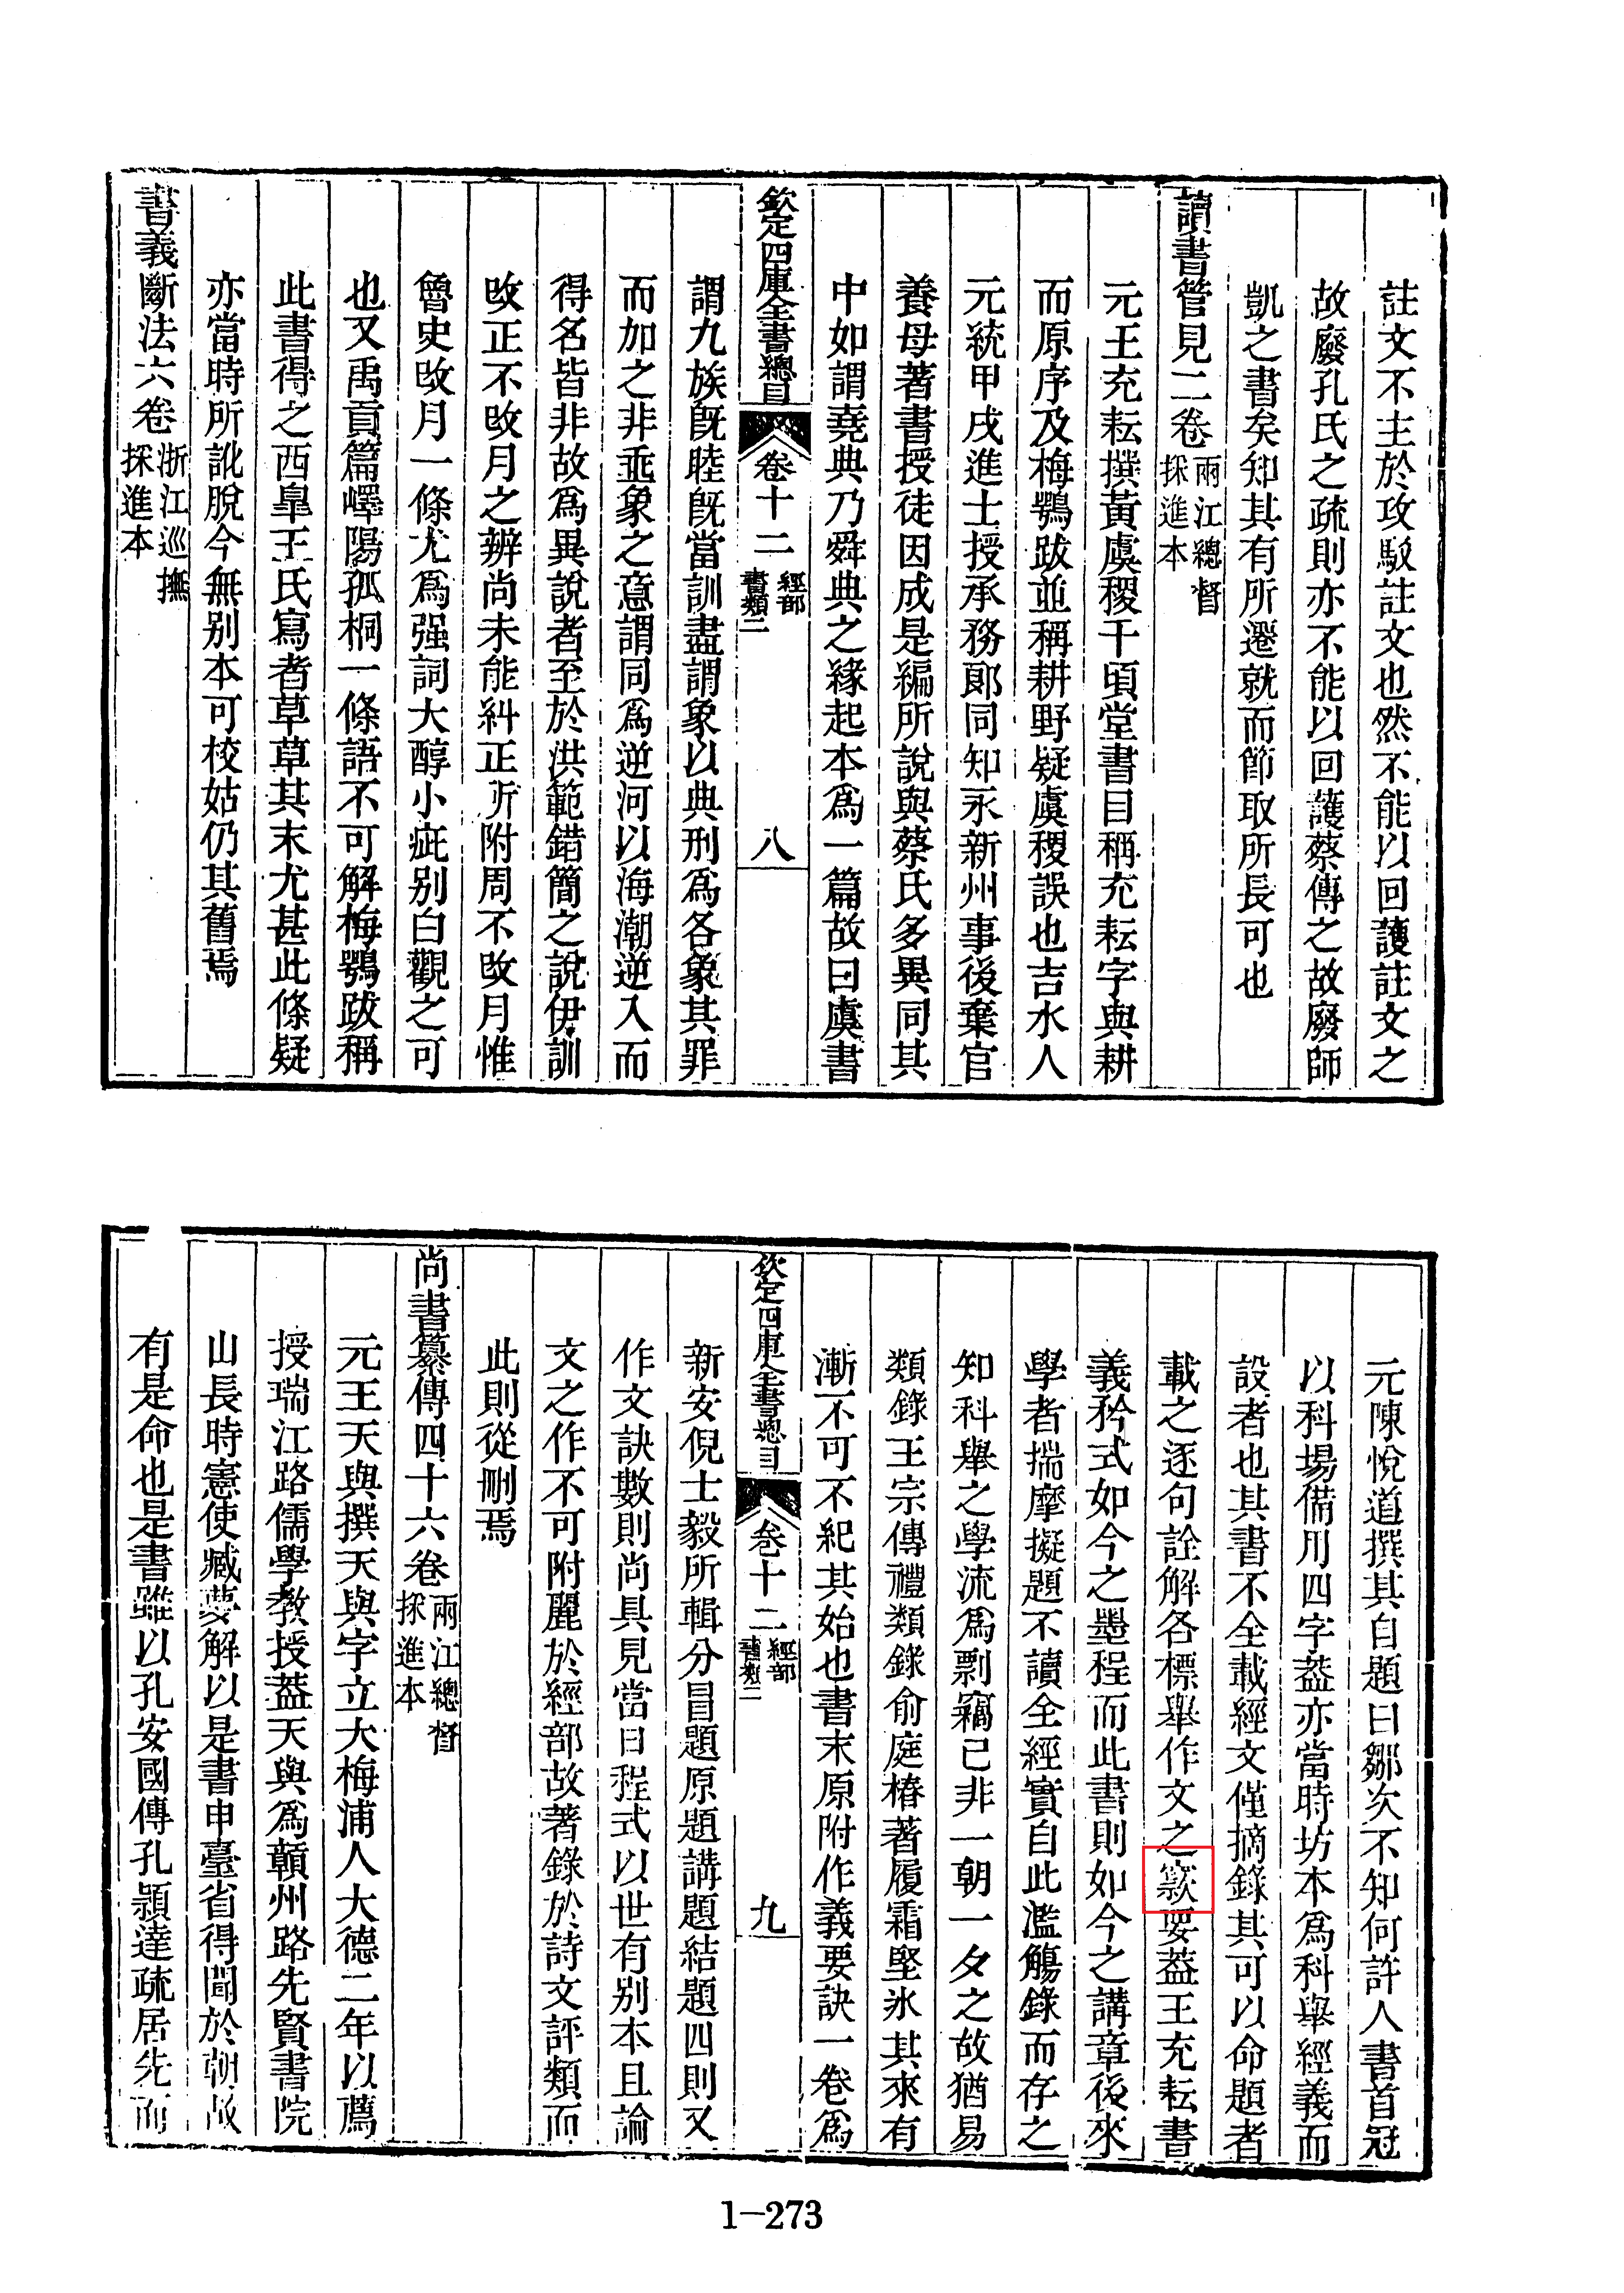 註文不主於攻駁註文也然不能以回護註文之
故廢孔氏之疏則亦不能以回護蔡傳之故廢師
凱之書矣知其有所遷就而節取所長可也
讀書管見二卷兩江總督採進本
元王充耘撰黃虞稷千頃堂書目稱充耘字與耕
而原序及梅鶚跋並稱耕野疑虞稷誤也吉水人
元統甲戌進士授承務郎同知永新州事後棄官
養母著書授徒因成是編所說與蔡氏多異同其
中如謂堯典乃舜典之緣起本爲一篇故曰虞書
欽定四庫全書總目 卷十二 經部書類二 八
謂九族旣睦旣當訓盡謂象以典刑爲各象其罪
而加之非垂象之意謂同爲逆河以海潮逆入而
得名皆非故爲異說者至於洪範錯簡之說伊訓
改正不改月之辨尚未能糾正所附周不改月惟
魯史改月一條尤爲强詞大醇小疵别白觀之可
也又禹貢篇嶧陽孤桐一條語不可解梅鶚跋稱
此書得之西臯王氏寫者草草其末尤甚此條疑
亦當時所訛脫今無别本可校姑仍其舊焉
書義斷法六卷浙江巡撫採進本
元陳悅道撰其自題曰鄒次不知何許人書首冠
以科場備用四字蓋亦當時坊本爲科舉經義而
設者也其書不全載經文僅摘錄其可以命題者
載之逐句詮解各標舉作文之窾要蓋王充耘書
義矜式如今之墨程而此書則如今之講章後來
學者揣摩擬題不讀全經實自此濫觴錄而存之
知科舉之學流爲剽竊已非一朝一夕之故猶易
類錄王宗傳禮類錄俞庭椿著履霜堅氷其來有
漸不可不紀其始也書末原附作義要訣一卷爲
欽定四庫全書總目 卷十二 經部書類二 九
新安倪士毅所輯分冒題原題講題結題四則又
作文訣數則尚具見當日程式以世有别本且論
文之作不可附麗於經部故著錄於詩文評類而
此則從刪焉
尚書纂傳四十六卷兩江總督採進本
元王天與撰天與字立大梅浦人大德二年以薦
授瑞江路儒學教授蓋天與爲贛州路先賢書院
山長時憲使臧夢解以是書申臺省得聞於朝故
有是命也是書雖以孔安國傳孔穎達疏居先而
1—273